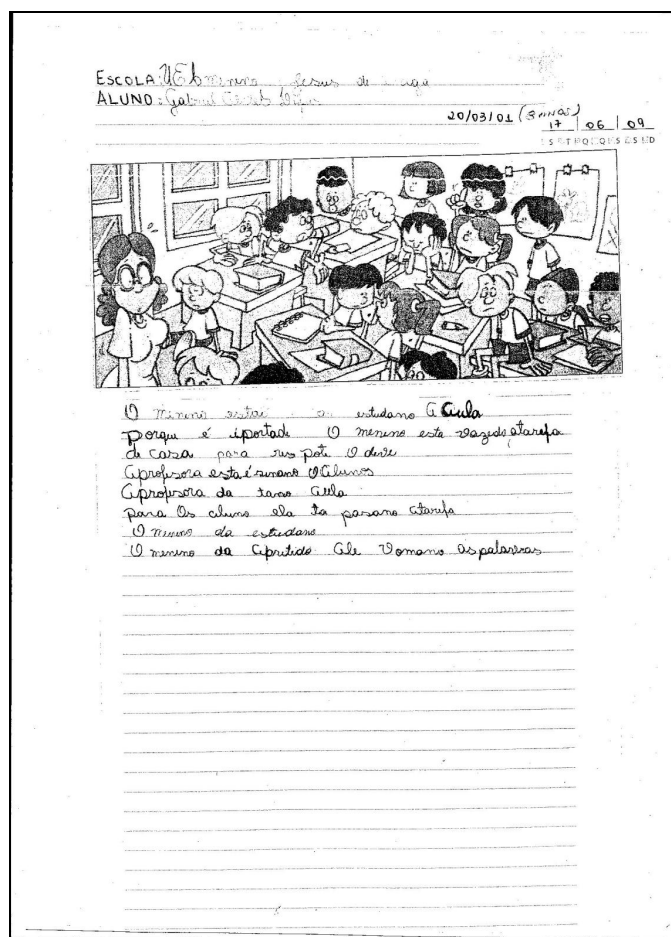 ESCOLA: UEB menino Jesus de
ALUNO: Gabriel
20/03/01 (8 anos)
17 06 09
S T Q Q S S D
O menino estai estudano a aula
porqui é iportadi O menino esta vazedo atarefa
de casa para res pote O deve
Aprofesora esta ésinano O Alunos
Aprofesora da tano aula
para Os aluno ela ta pasano atarefa
O menino da estudano
O menino da Apritido Ale Vomano as palavras